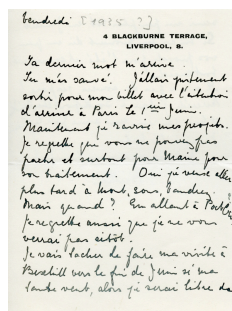 Vendredi [1935 ?]
4 BLACKBURNE TERRACE,
LIVERPOOL, 8.
Ta dernier mot m'arrive.
Tu m'as sauvé. J'allais
sortir pour mon billet avec l'intention
d'arriver à Paris le 1ier Juin.
Maintenant je mes projets.
Je regrette que vous ne pouvez pas
et surtout pour Maine pour
son traitement. Oui je verse aller
plus tard à Mont, sous,
Mais quand? En allant à
Je regrette aussi que je ne vous
verrai pas sitôt.
Je vais tacher de faire ma visite à
Bexhill vers le fin de Juin si ma
sante veut, alors je serai libre de